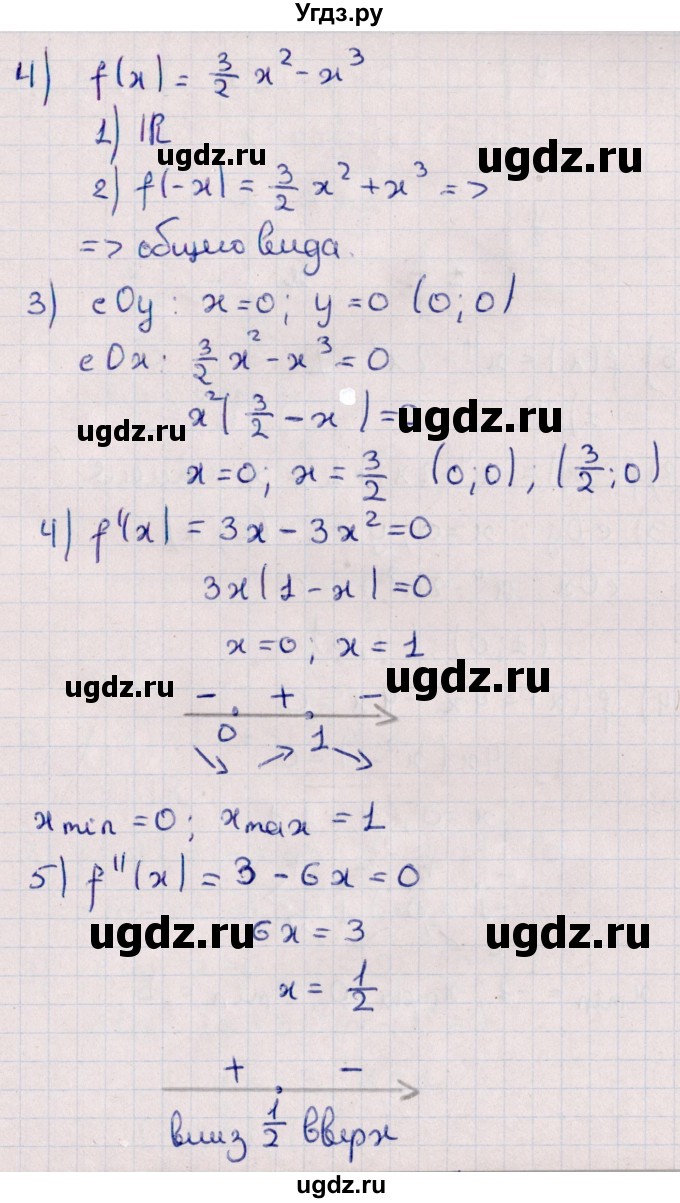 Угдз.ру
4) f(x) = 3/2 x² - x³
1) ℝ
ugdz.ru ugdz.ru
2) f(-x) = 3/2 x² + x³ =>
=> общего вида.
3) с Oy: x=0; y=0 (0;0)
с Ox: 3/2 x² - x³ = 0
x²(3/2 - x) = 0
ugdz.ru ugdz.ru
x=0; x = 3/2 (0;0), (3/2;0)
4) f'(x) = 3x - 3x² = 0
3x(1 - x) = 0
x=0; x = 1
ugdz.ru ugdz.ru
- + -
0 1
↘ ↗ ↘
x min = 0; x max = 1
5) f''(x) = 3 - 6x = 0
ugdz.ru 6x = 3 ugdz.ru
x = 1/2
+ -
вниз 1/2 вверх
ugdz.ru